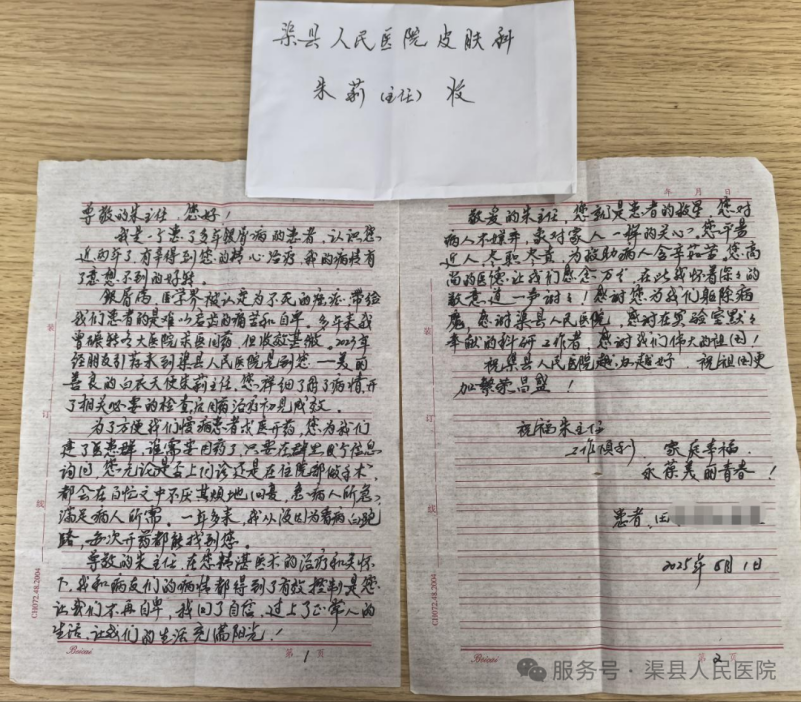 渠县人民医院皮肤科
朱莉(主任) 收
尊敬的朱主任,您好!
我是一个患了多年银屑病的患者,认识您
近两年了,有幸得到您的精心治疗,我的病情有
了意想不到的好转。
银屑病,医学界被认定为不死的癌症,带给
我们患者的是难以启齿的痛苦和自卑。多年来我
曾辗转各大医院求医问药,但收效甚微。2023年
经朋友引荐来到渠县人民医院见到您——美丽
善良的白衣天使朱莉主任,您详细了解了病情,开
了相关必要的检查,启用药治疗初见成效。
为了方便我们慢病患者求医开药,您为我们
建了医患群,谁需要用药了,只要在群里留个信息
询问,您无论是在上门诊还是在住院部做手术,
都会在百忙之中不厌其烦地回复,急病人所急,
满足病人所需。一年多来,我从没因为看病白跑
路,每次开药都能找到您。
尊敬的朱主任,在您精湛医术的治疗和关怀
下,我和病友们的病情都得到了有效控制,是您
让我们不再自卑,找回了自信,过上了正常人的
生活,让我们的生活充满阳光!
第1页
CH072.48.2004
装
订
线
年 月 日
敬爱的朱主任,您就是患者的救星,您对
病人不嫌弃,象对家人一样的关心,您平易
近人,尽职尽责,为救助病人含辛茹苦。您高
尚的医德,让我们感念万分,在此我怀着深深的
敬意道一声谢谢!感谢您为我们驱除病
魔,感谢渠县人民医院,感谢在实验室默默
奉献的科研工作者,感谢我们伟大的祖国!
祝渠县人民医院越办越好,祝祖国更
加繁荣昌盛!
祝福朱主任
工作顺利,家庭幸福,
永葆美丽青春!
患者:田
2025年8月1日
第2页
CH072.48.2004
装
订
线
服务号·渠县人民医院